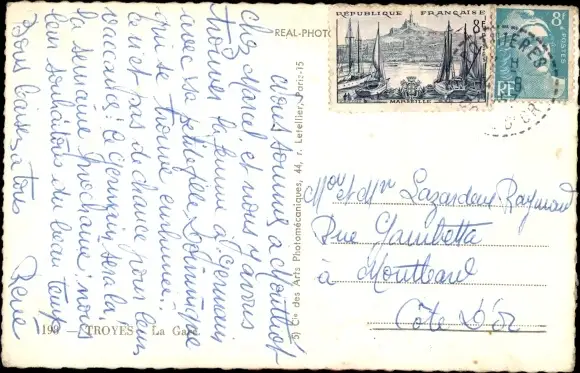 Nous sommes à Monthiot
chez Marcel et nous y avons
trouver la femme à Germain
avec sa petite fille Dominique
qui se trouve enrhumée.
Ce n'est pas de chance pour leur
vacances : Germain sera là
la semaine prochaine ; nous
leur souhaitons du beau temps
Bons baisers à tous
René
190 — TROYES — La Gare
REAL-PHOTO
Cie des Arts Photomécaniques, 44, r. Letellier, Paris-15
RÉPUBLIQUE FRANÇAISE
8F
MARSEILLE
8F
POSTES
RF
D'OR
et Mr Lazardeux Raymond
Rue Gambetta
à Montbard
Côte D'Or